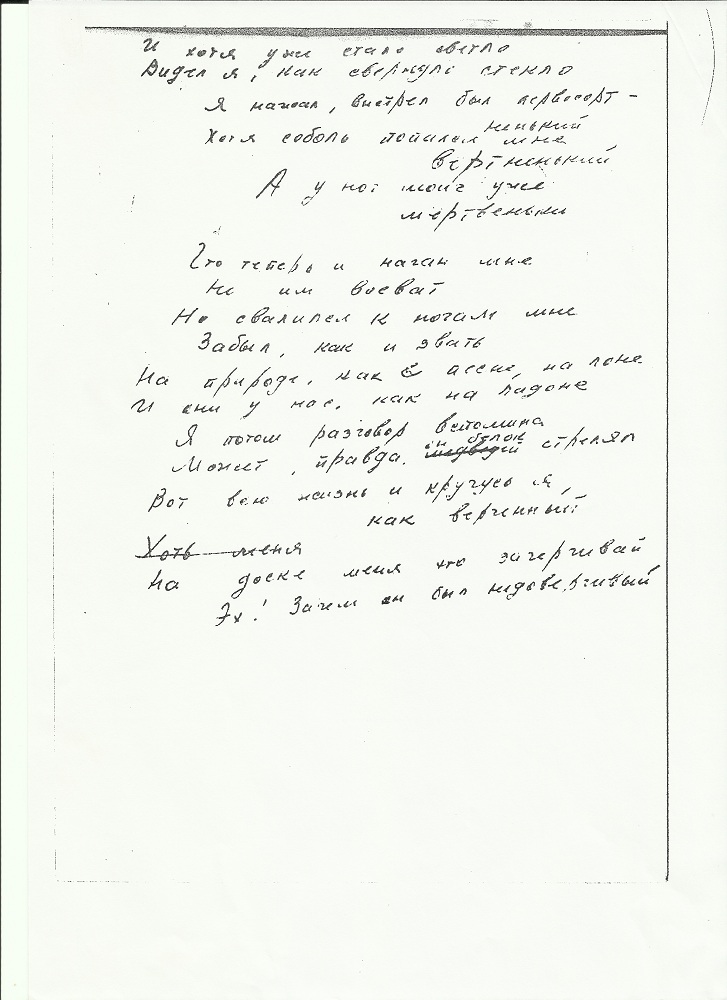 И хотя уже стало светло
Видел я, как сверкнуло стекло
Я нажал, выстрел был первосорт-
ненький
Хотя соболь попался мне
вертненький
А у ног моих уже
мертвенький
Что теперь и наган мне
Не им воеват
Но свалился к ногам мне
Забыл, как и звать
На природе, как в песне, на лоне
И они у нас, как на ладоне
Я потом разговор вспомина
он белок
Может, правда, медведей стрелял
Вот всю жизнь и кручусь я,
как верченный
Хоть меня
На доске меня это зачерчивай
Эх! Зачем он был недоверчивый